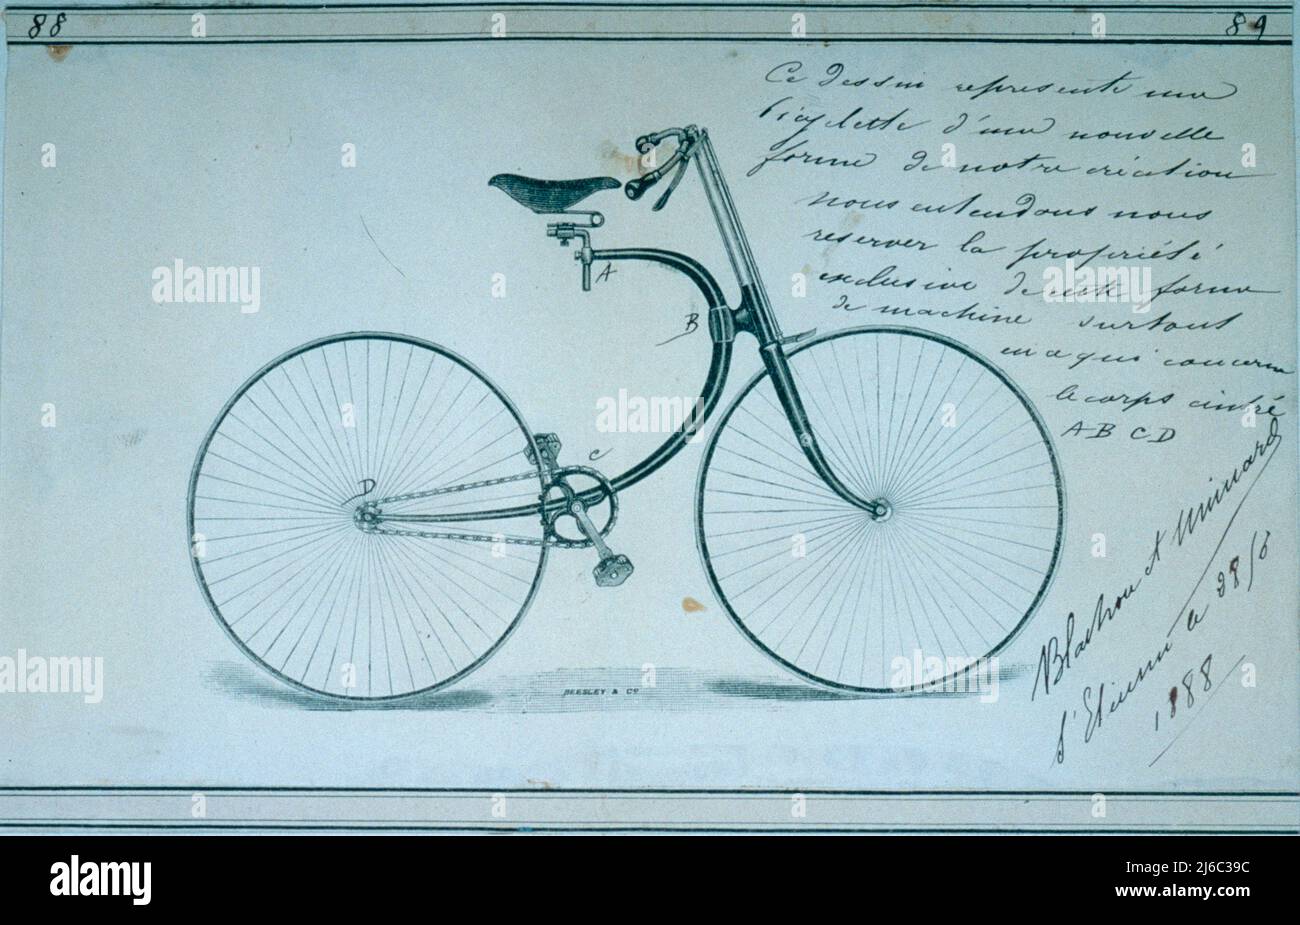 88
89
Ce dessin represente une
bicyclette d'une nouvelle
forme de notre création
nous entendons nous
reserver la propriété
exclusive de cette forme
de machine surtout
en ce qui concerne
le corps cintré
A B C D
A
B
C
D
BEESLEY & Co.
et
St Etienne le 28/6
1888
alamy
Image ID: 2J6C39C
www.alamy.com